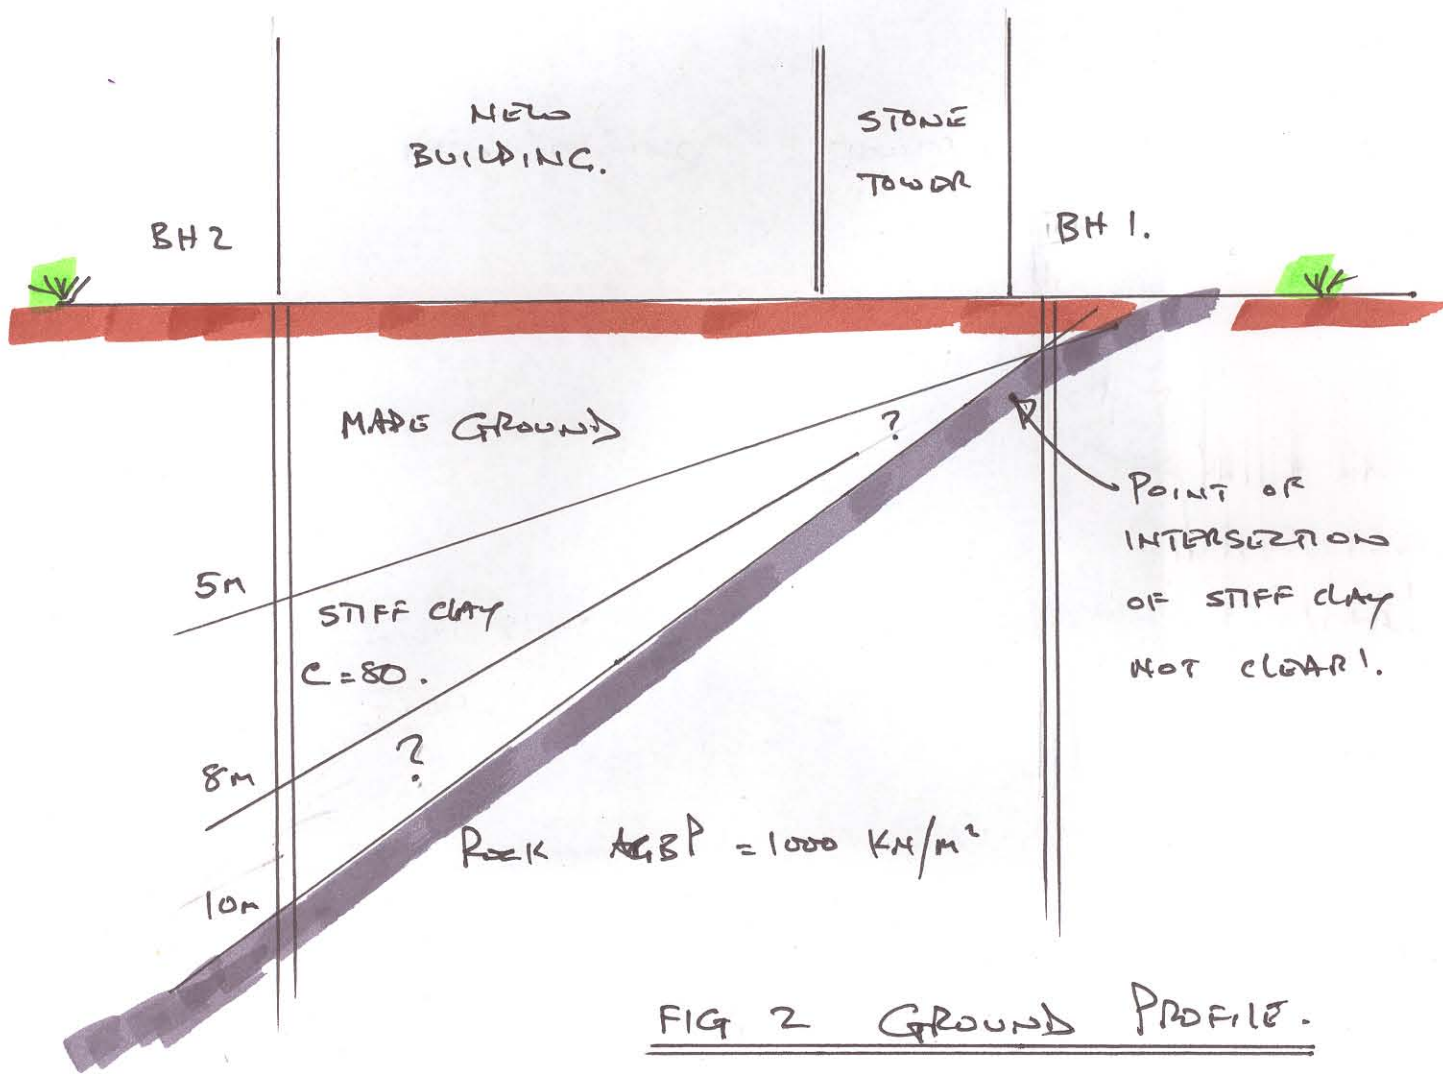 NEW
BUILDING.
STONE
TOWER
BH 2
BH 1.
MADE GROUND
?
POINT OF
INTERSECTION
OF STIFF CLAY
NOT CLEAR!.
5m
STIFF CLAY
C=80.
?
8m
ROCK AGBP = 1000 KN/m²
10m
FIG 2 GROUND PROFILE.